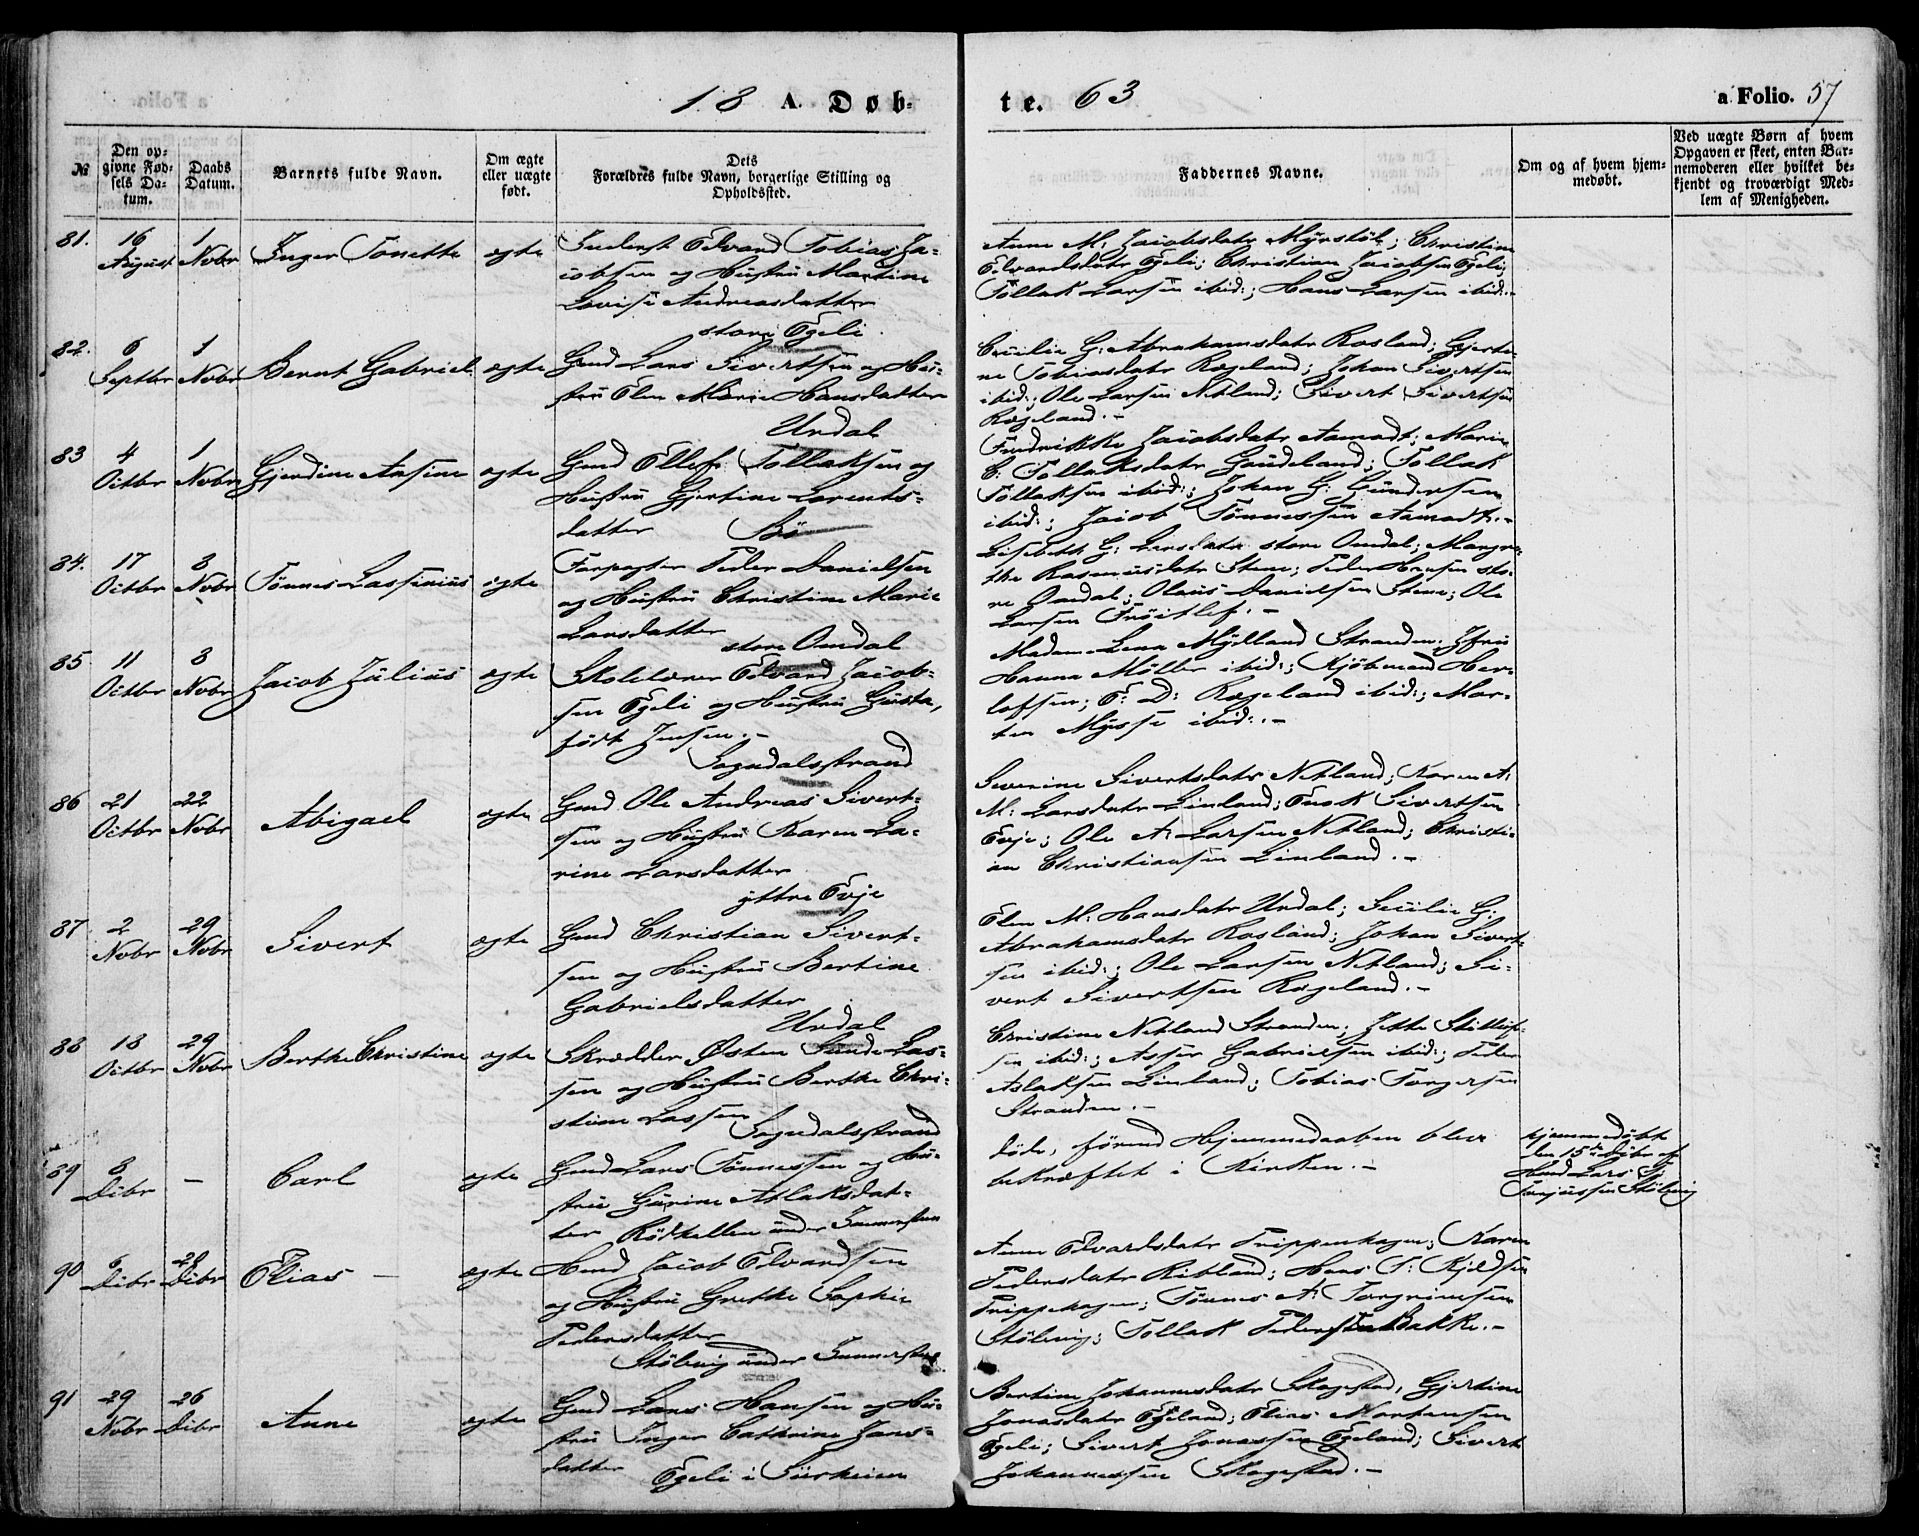 18 A. Døb-
te. 63
a Folio. 57
№
Den op-
givne Fød-
sels Da-
tum.
Daabs
Datum.
Barnets fulde Navn.
Om ægte
eller uægte
født.
Dets
Forældres fulde Navn, borgerlige Stilling og
Opholdssted.
Faddernes Navne.
Om og af hvem hjem-
medøbt.
Ved uægte Børn af hvem
Opgaven er skeet, enten Bar-
nemoderen eller hvilket be-
kjendt og troværdigt Med-
lem af Menigheden.
81. 16 August 1 Nobr Inger Tonette ægte
Inderst Edvard Tobias Ja-
cobsen og Hustru Martine
Lovise Andreasdatter
store Egeli
Anne M: Jacobsdatr Myrstøl; Christine
Edvardsdatr Egeli; Christian Jacobsen Egeli;
Tollak Larsen ibid:; Hans Larsen ibid:.-
82. 6 Septbr 1 Nobr Bernt Gabriel ægte
Gmd Lars Sivertsen og Hu-
stru Elen Marie Hansdatter
Urdal
Cecilie G: Abrahamsdatr Rosland; Gjerti-
ne Tobiasdatr Rogeland; Johan Sivertsen
ibid:; Ole Larsen Netland; Sivert Sivertsen
Rogeland.-
83 4 Octbr 1 Nobr Gjerdine Ansine ægte
Gmd Ellef Tollaksen og
Hustru Gjertine Lorents-
datter Bø
Fredrikke Jacobsdatr Aamodt; Marie
C: Tollaksdatr Gaudeland; Tollak
Tollaksen ibid:; Johan G: Gundersen
ibid:; Jacob Tønnessen Aamodt.-
84. 17 Octbr 8 Nobr Tønnes Lassenius ægte
Forpagter Peder Danielsen
og Hustru Christine Marie
Larsdatter
store Omdal
Lisebeth G: Larsdatr store Omdal; Margre-
the Rasmusdatr Stene; Peder Hansen sto-
re Omdal; Olaus Danielsen Stene; Ole
Larsen Frøitlef.-
85. 11 Octbr 8 Nobr Jacob Julius ægte
Skolelærer Edvard Jacob-
sen Egeli og Hustru Gusta,
født Jensen.-
Sogndalsstrand
Madam Lena Mylland Stranden; Jfru
Hanna Møller ibid:; Kjøbmand Her-
lofsen; E: D: Rogeland ibid:; Mor-
ten Mysse ibid:.-
86 21 Octbr 22 Nobr Abigael ægte
Gmd Ole Andreas Sivert-
sen og Hustru Karen La-
rine Larsdatter
yttre Evje
Severine Sivertsdatr Netland; Karen A:
M: Larsdatr Linland; Enok Sivertsen
Evje; Ole A: Larsen Netland; Christi-
an Christiansen Linland.-
87 2 Nobr 29 Nobr Sivert ægte
Gmd Christian Sivert-
sen og Hustru Bertine
Gabrielsdatter
Urdal
Elen M: Hansdatr Urdal; Secilie G:
Abrahamsdatr Rosland; Johan Sivert-
sen ibid:; Ole Larsen Netland; Si-
vert Sivertsen Rogeland.-
88 18 Octbr 29 Nobr Berthe Christine ægte
Skrædder Østen Sunde Las-
sen og Hustru Berthe Chri-
stine Lassen
Sogndalsstrand
Christine Netland Stranden; Jette
sen ibid:; Asser Gabrielsen ibid:; Peder
Aslaksen Linland; Tobias Torgersen
Stranden.-
89 8 Dcbr - Carl ægte
Gmd Lars Tønnessen og Hu-
stru Gurine Atlaksdat-
ter Rødhellen under
døde, førend Hjemmedaaben blev
bekræftet i Kirken.-
hjemmedøbt
den 15de Dcbr af
Hmd Lars T:
Stølsvig
90 6 Dcbr 20 Dcbr Elias - ægte
Hmd Jacob Edvardsen
og Hustru Grethe Sophie
Pedersdatter
Stølsvig under
Anne Edvardsdatr Trippenhagen; Karen
Pedersdatr Ribland; Hans S: Kjeldsen
Trippehagen; Tønnes A: Torgrimsen
Stølsvig; Tollak Pedersen Bakke.-
91 29 Nobr 26 Dcbr Anne ægte
Gmd Lars Hansen og Hu-
stru Inger Cathrine Jans-
datter Egeli i
Bertine Johannesdatr Skogestad; Gjertine
Jonasdatr Egeland; Elias Mortensen
Egeli; Sivert Jonassen Egeland; Sivert
Johannessen Skogestad.-